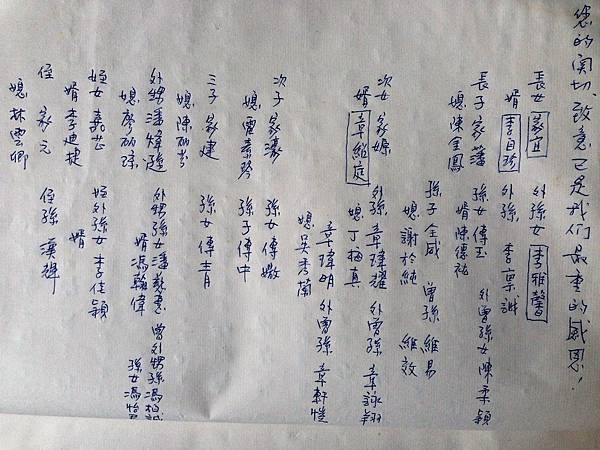 您的関切、致意已是我们最重的感恩，
長女 家宜 外孫女 李雅馨
婿 李自珍 外孫 李秉誠
長子 家藩 孫女傳玉 外曾孫女陳柔穎
媳 陳金鳳 婿陳德祐
孫子全咸 曾孫 維易
媳謝於純 維效
次女 家嫄 外孫 章瑋耀 外曾孫 章詠翔
婿 章維庭 媳丁梅真
章瑋明 外曾孫 章軒愷
媳吳秀蘭
次子 家濠 孫女傳嫩
媳 孫子傳中
三子 家建 孫女傳青
媳 陳
外甥潘煒遜 外甥孫女潘 曾外甥孫馮柏
媳廖 婿馮翰偉 孫女馮怡
姪女 嘉芷 姪外孫女李佳穎
婿李迪捷 婿
侄 家元 侄孫 漢輝
媳 林雲卿